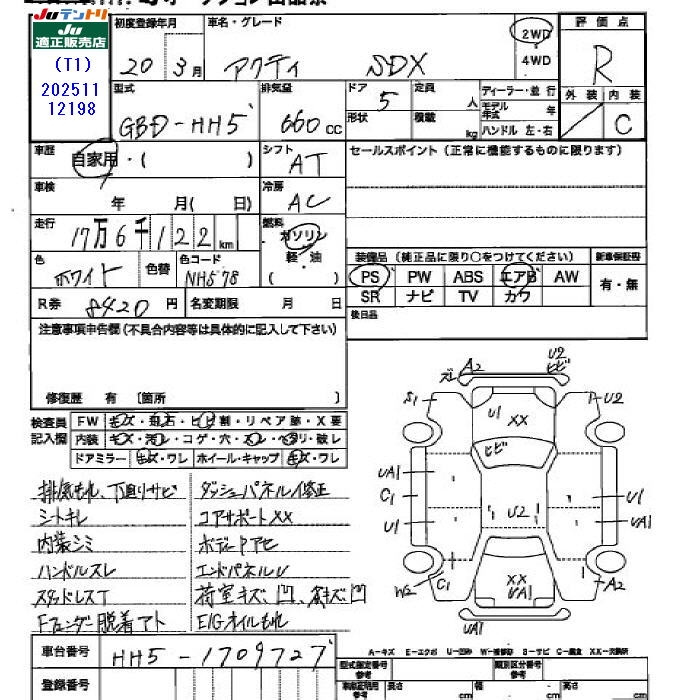 Ju テントリ
Ju
適正販売店
(T1)
202511
12198
初度登録年月 車名・グレード
20 3月 アクティ SDX
2WD
4WD
評価点
R
外装 内装
C
型式 排気量 ドア 定員 ディーラー・並行
GBD-HH5 660cc 5 人
モデル年式 年
形状 積載 kg ハンドル 左・右
車歴 自家用・( ) シフト AT
セールスポイント(正常に機能するものに限ります)
車検 年 月( 日) 冷房 AC
走行 17万6千122km 燃料 ガソリン
軽・油
( )
色 ホワイト 色替 色コード NH578
装備品(純正品に限り○をつけてください) 新車保証書
PS PW ABS エアB AW 有・無
SR ナビ TV カワ
R券 8420円 名変期限 月 日
後日品
注意事項申告欄(不具合内容等は具体的に記入して下さい)
修復歴 有 〔箇所 〕
検査員記入欄
FW キズ・飛石・ヒビ割・リペア跡・X要
内装 キズ・汚レ・コゲ・穴・スレ・ヘタリ・破レ
ドアミラー キズ・ワレ ホイール・キャップ キズ・ワレ
排気もれ、下回りサビ ダッシュパネルイ修正
シートキレ コアサポートXX
内装シミ ボディーPアセ
ハンドルスレ エンドパネルU
スタッドレスT 荷室キズ、凹、
Fフェンダー脱着アト E/Gオイルもれ
A2
U2
ヒビ
ズレ
S1
U2
U1
XX
ヒビ
UA1
C1
U1
U2
U1
UA1
W2
C1
XX
UA1
A2
UA1
車台番号 HH5-1709727
登録番号
A-キズ E-エクボ U-凹み W-補修跡 S-サビ C-腐食 XX-交換済
型式指定番号
参考 類別区分番号
参考
車庫証明用
参考 長さ cm 幅 cm 高さ cm